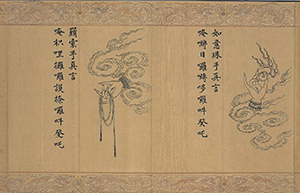 如意珠手真言
唵嚩日囉嚩哆囉吽癹吒
羂索手真言
唵枳哩攞囉謨捺囉吽癹吒